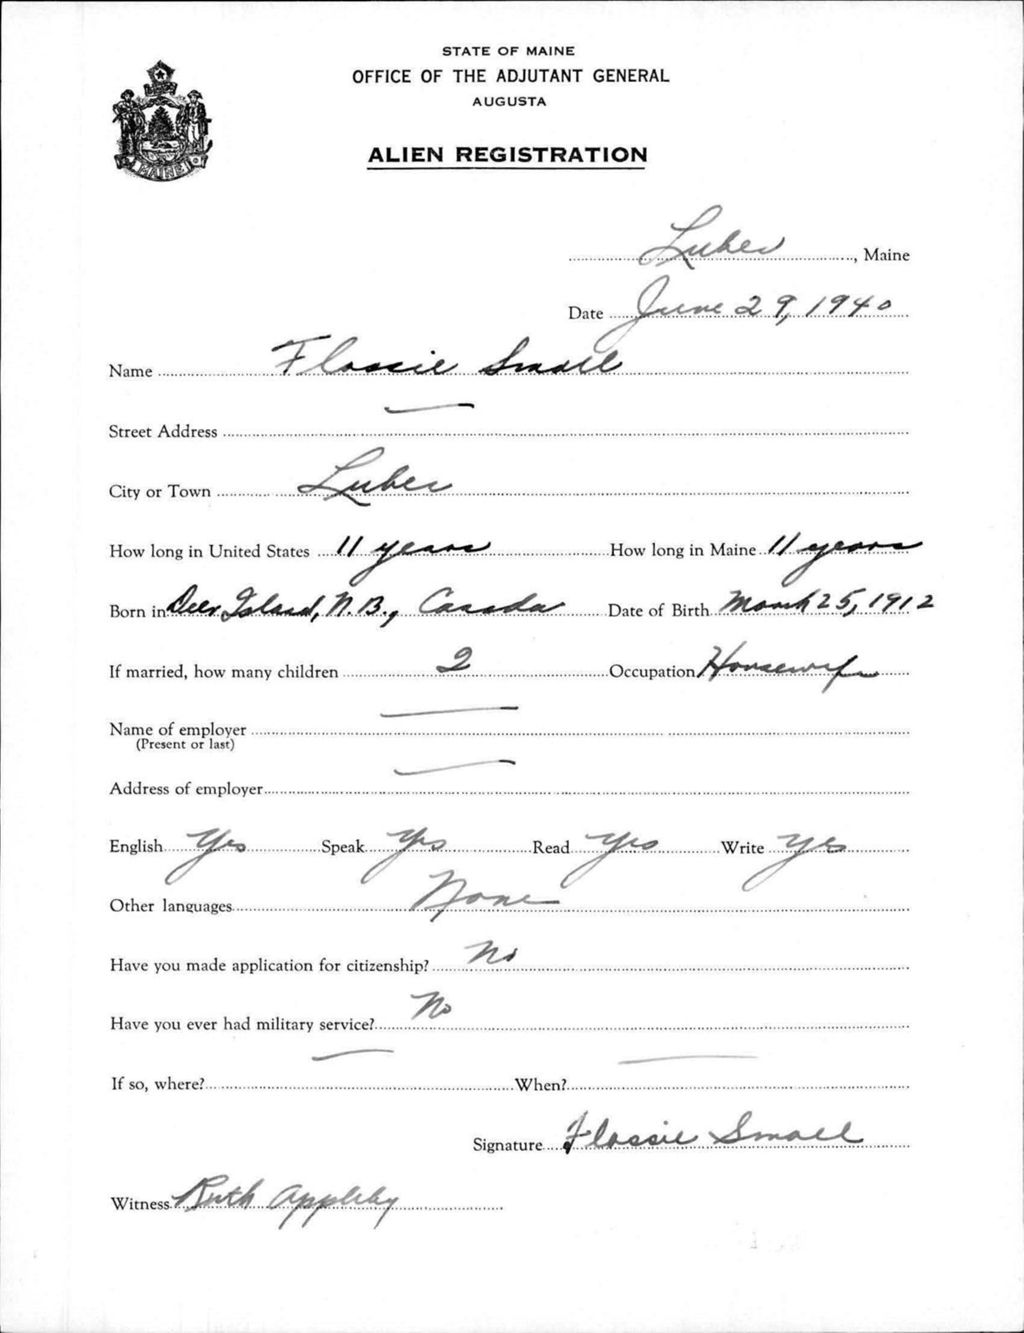 STATE OF MAINE
OFFICE OF THE ADJUTANT GENERAL
AUGUSTA
ALIEN REGISTRATION
MAINE
Lubec, Maine
Date June 29, 1940
Name Flossie Small
Street Address —
City or Town Lubec
How long in United States 11 years How long in Maine 11 years
Born in Deer Island, N.B., Canada Date of Birth March 25, 1912
If married, how many children 2 Occupation Housewife
Name of employer —
(Present or last)
Address of employer —
English Yes Speak Yes Read Yes Write Yes
Other languages None
Have you made application for citizenship? No
Have you ever had military service? No
If so, where? — When? —
Signature Flossie Small
Witness Ruth Appleby